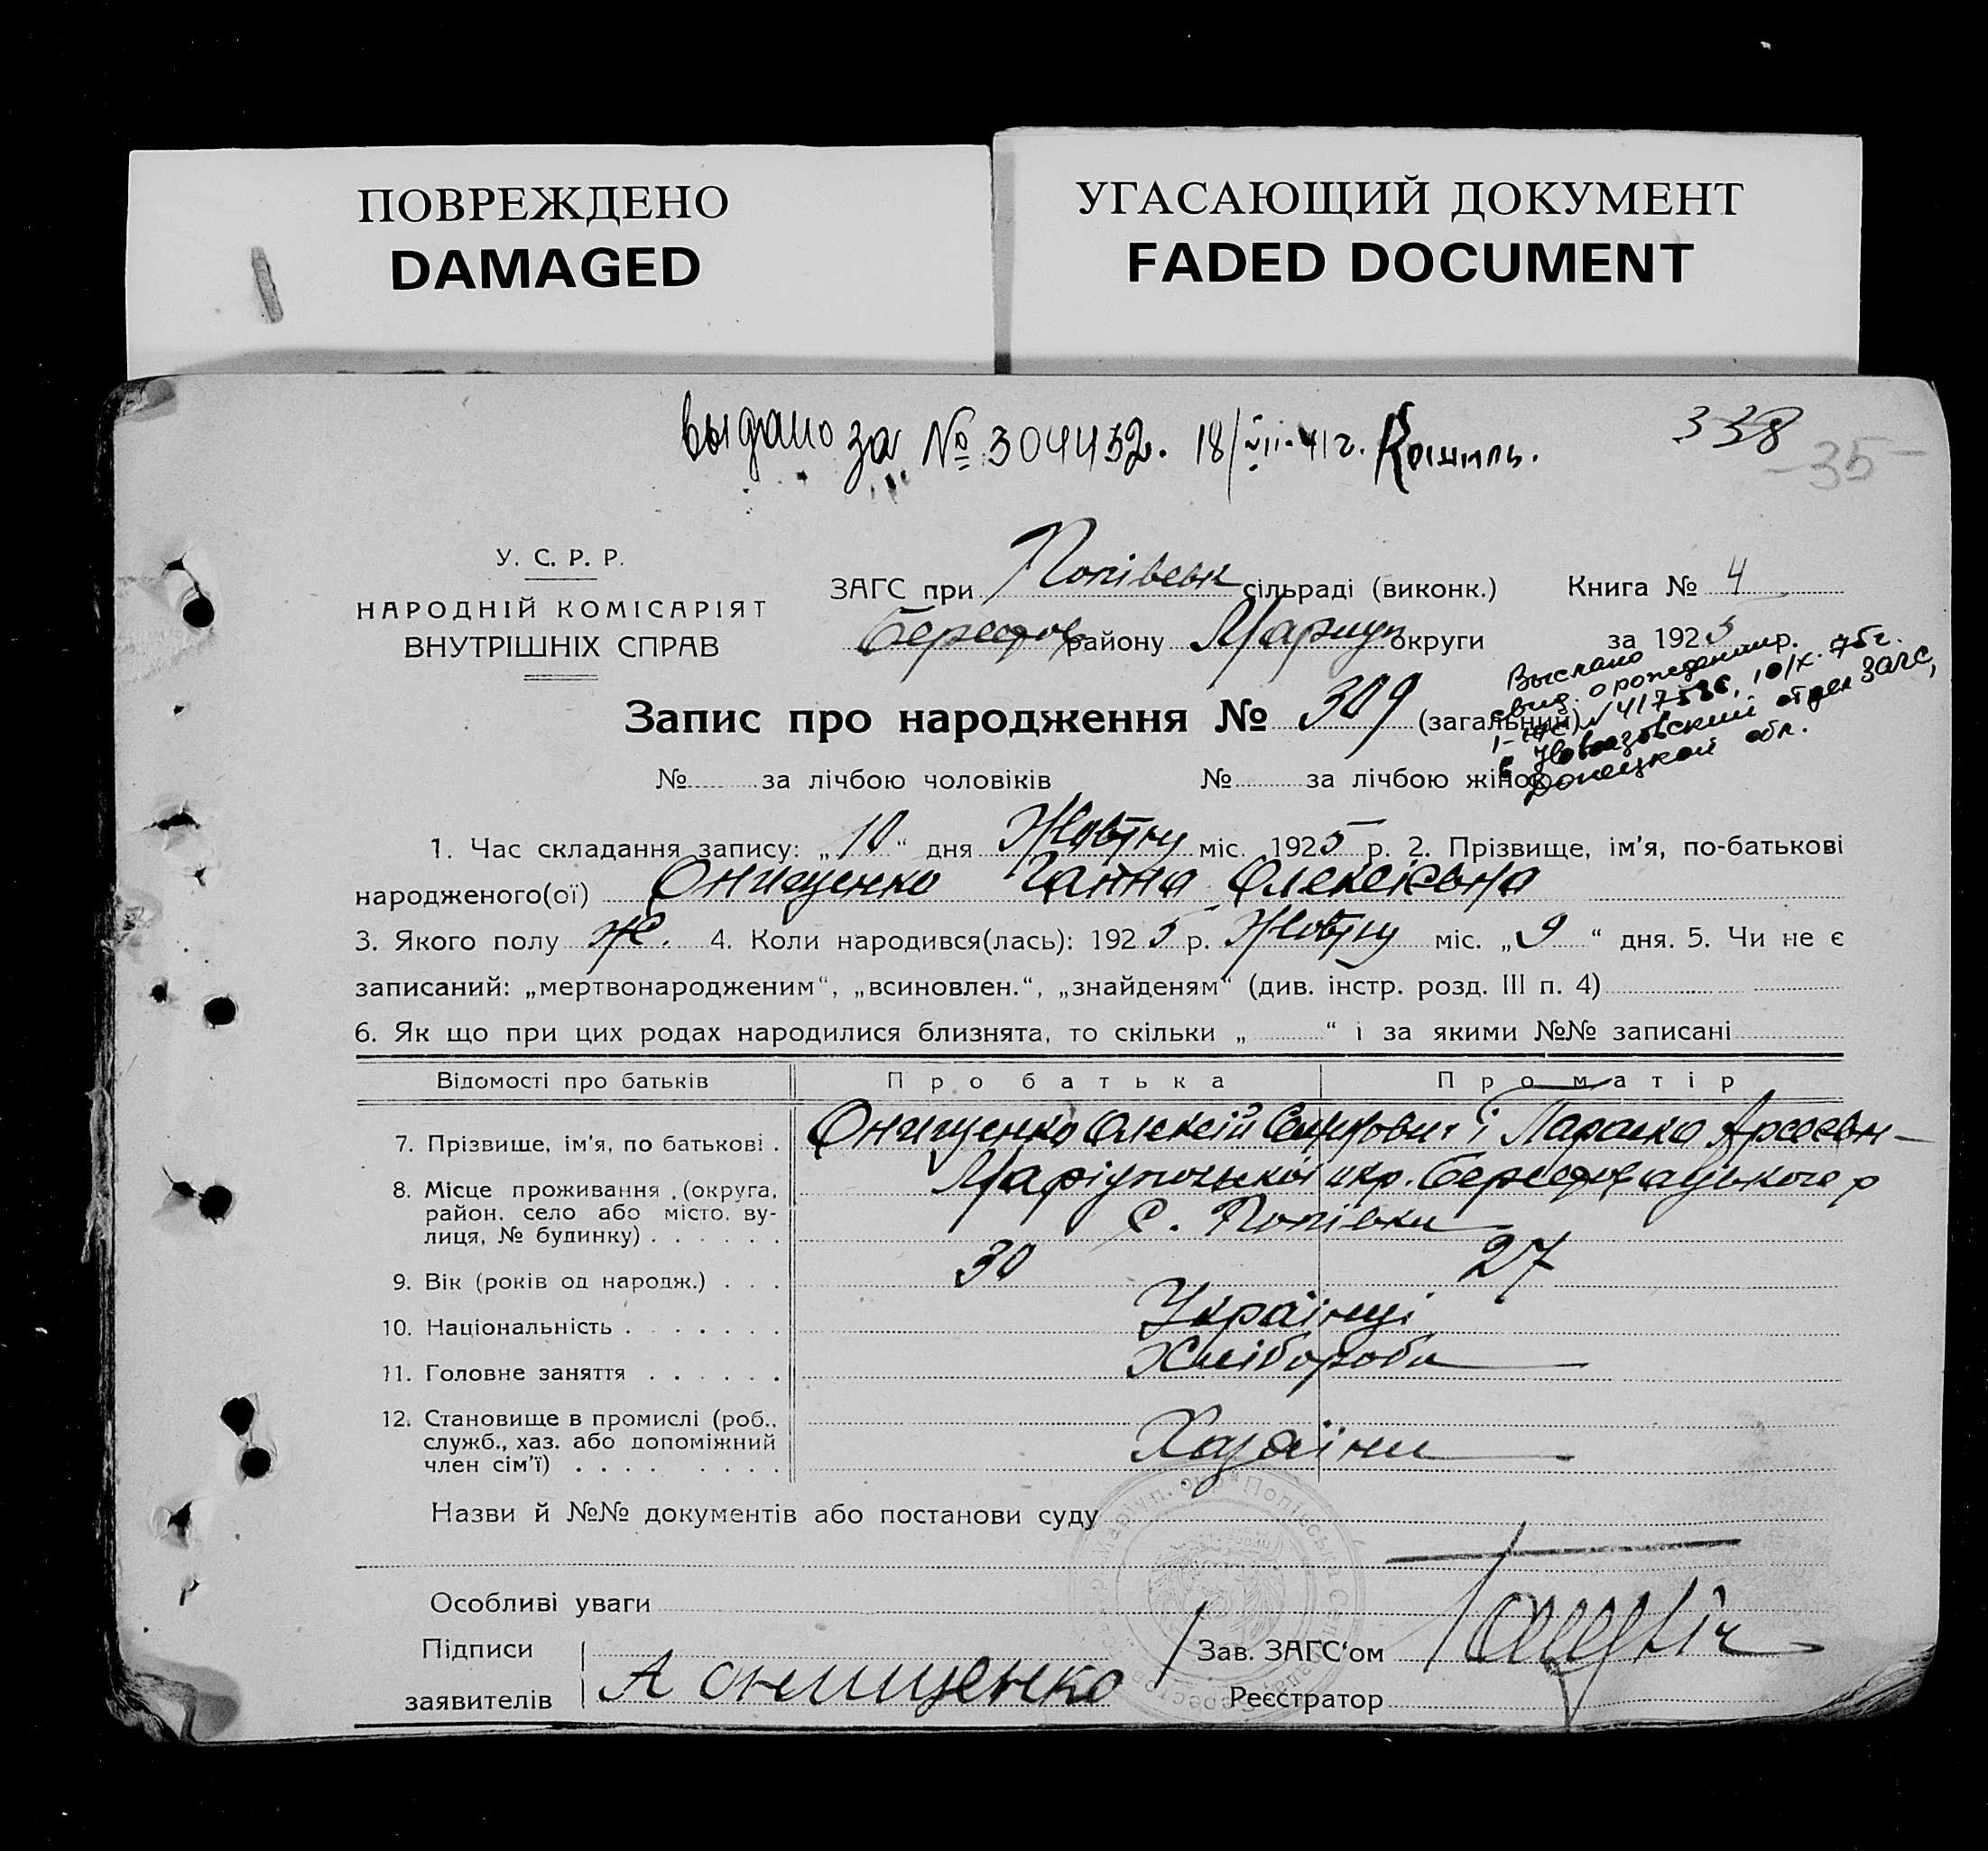 ПОВРЕЖДЕНО
DAMAGED
УГАСАЮЩИЙ ДОКУМЕНТ
FADED DOCUMENT
338
-35-
выдано за № 304432. 18/VII-41 г.
У. С. Р. Р.
НАРОДНІЙ КОМІСАРІЯТ
ВНУТРІШНІХ СПРАВ
ЗАГС при Попівськ сільраді (виконк.) Книга № 4
Берестов району Маріуп округи за 1925 р.
Выслано
свид. о рождении
I- № 417536, 10/X. 75 г.
в Новоазовский отдел ЗАГС,
Донецкой обл.
Запис про народження № 309 (загальний)
№ за лічбою чоловіків № за лічбою жінок
1. Час складання запису: „10“ дня Жовтну міс. 1925 р. 2. Прізвище, ім'я, по-батькові
народженого(ої) Онищенко Ганна Олексієвна
3. Якого полу ж. 4. Коли народився(лась): 1925 р. Жовтну міс. „9“ дня. 5. Чи не є
записаний: „мертвонародженим“, „всиновлен.“, „знайденям“ (див. інстр. розд. III п. 4)
6. Як що при цих родах народилися близнята, то скільки „ “ і за якими №№ записані
Відомості про батьків Про батька Про матір
7. Прізвище, ім'я, по батькові . Онищенко Олексій і Параска Арсеєвн
8. Місце проживання (округа, Маріупольскої окр. Берестовацького р
район, село або місто, ву- с. Попівки
лиця, № будинку) . . . . . .
9. Вік (років од народж.) . . . 30 27
10. Національність . . . . . . . Українці
11. Головне заняття . . . . . . Хлібороби
12. Становище в промислі (роб.,
служб., хаз. або допоміжний Хазаіни
член сім'ї) . . . . . . . .
Назви й №№ документів або постанови суду
Особливі уваги
Підписи
заявителів А Онищенко
Зав. ЗАГС'ом
Реєстратор